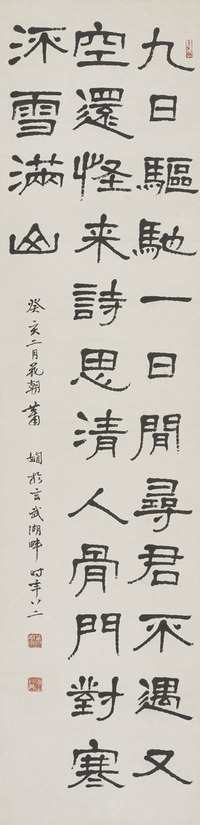 九日驅馳一日閒尋君不遇又
空還怪来詩思清人骨門對寒
流雪滿山
癸亥二月花朝蕭嫻於玄武湖畔时年八二